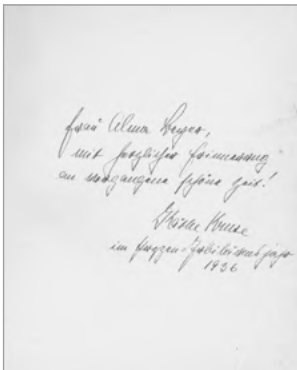 Frau Alma Beyer,
mit herzlicher Erinnerung
an vergangene schöne Zeit!
Käthe Kruse
im Puppen-Jubiläumsjahr
1936